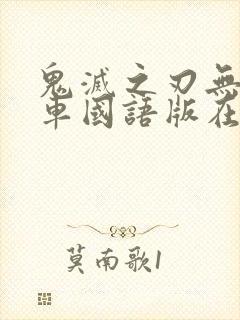 鬼滅之刃無
車國語版在
莫南歌1